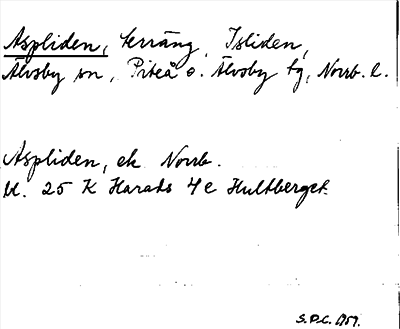 Aspliden, terräng, Isliden,
Älvsby sn, Piteå o. Älvsby tg, Norrb. l.
Aspliden, ek Norrb.
bl. 25 K Harads 4e Hultberget.
S.P.C. 1959.